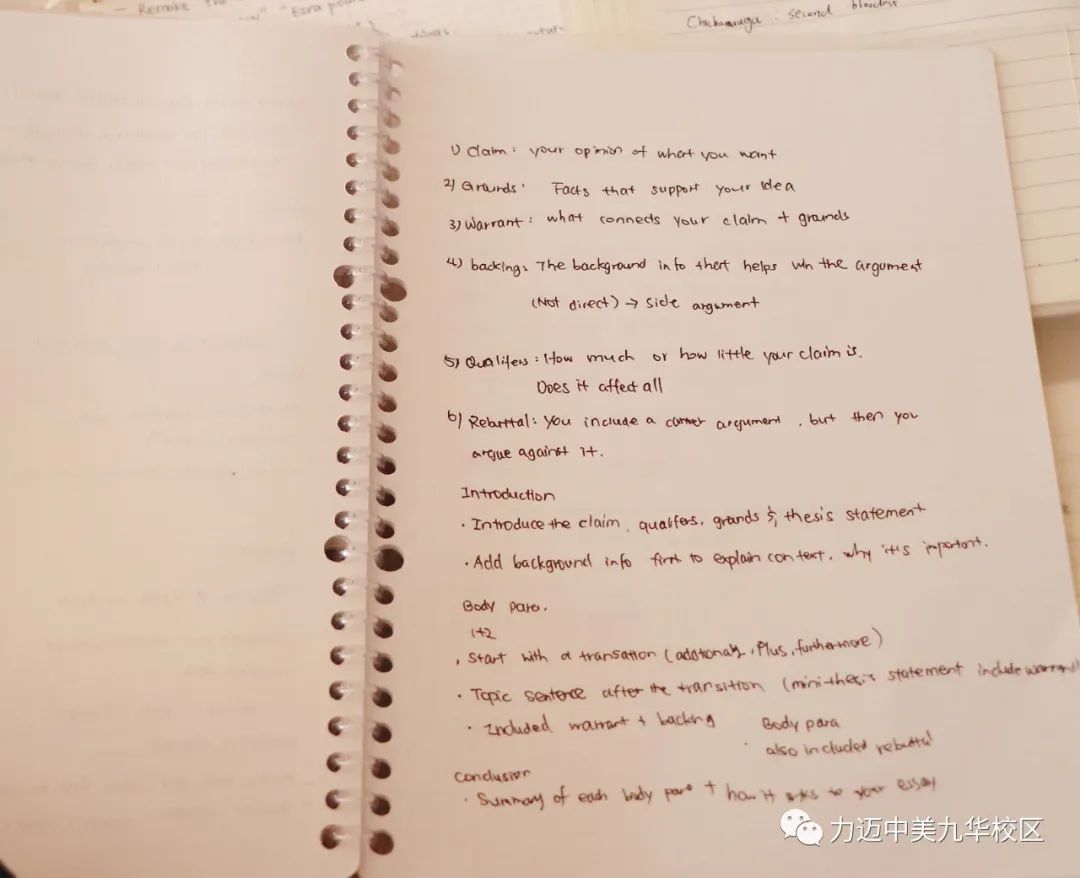 — Remake the
"Ezra pound
Chickamauga : second bloodiest
1) Claim : your opinion of what you want
2) Grounds : Facts that support your idea
3) Warrant : what connects your claim + grounds
4) backing : The background info that helps win the argument
(Not direct) → side argument
5) Qualifers : How much or how little your claim is.
Does it affect all
6) Rebuttal : You include a counter argument , but then you
argue against it.
Introduction
· Introduce the claim, qualifers, grounds & thesis statement
· Add background info first to explain context, why it's important.
Body para.
1+2
, Start with a transation (addtionaly, Plus, furthermore)
· Topic sentence after the transition (mini-thesis statement include warrant
· Included warrant + backing
Body para
· also included rebuttal
Conclusion
· Summary of each body para + how it to your essay
力迈中美九华校区